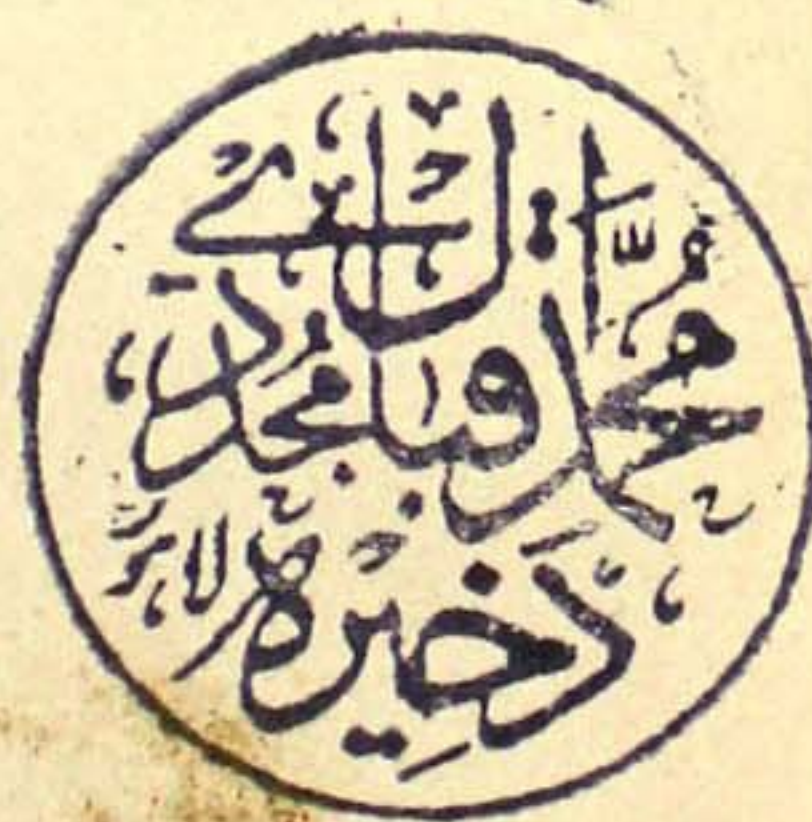 ذخیرہ
محمد اقبال مجددی
لاہور